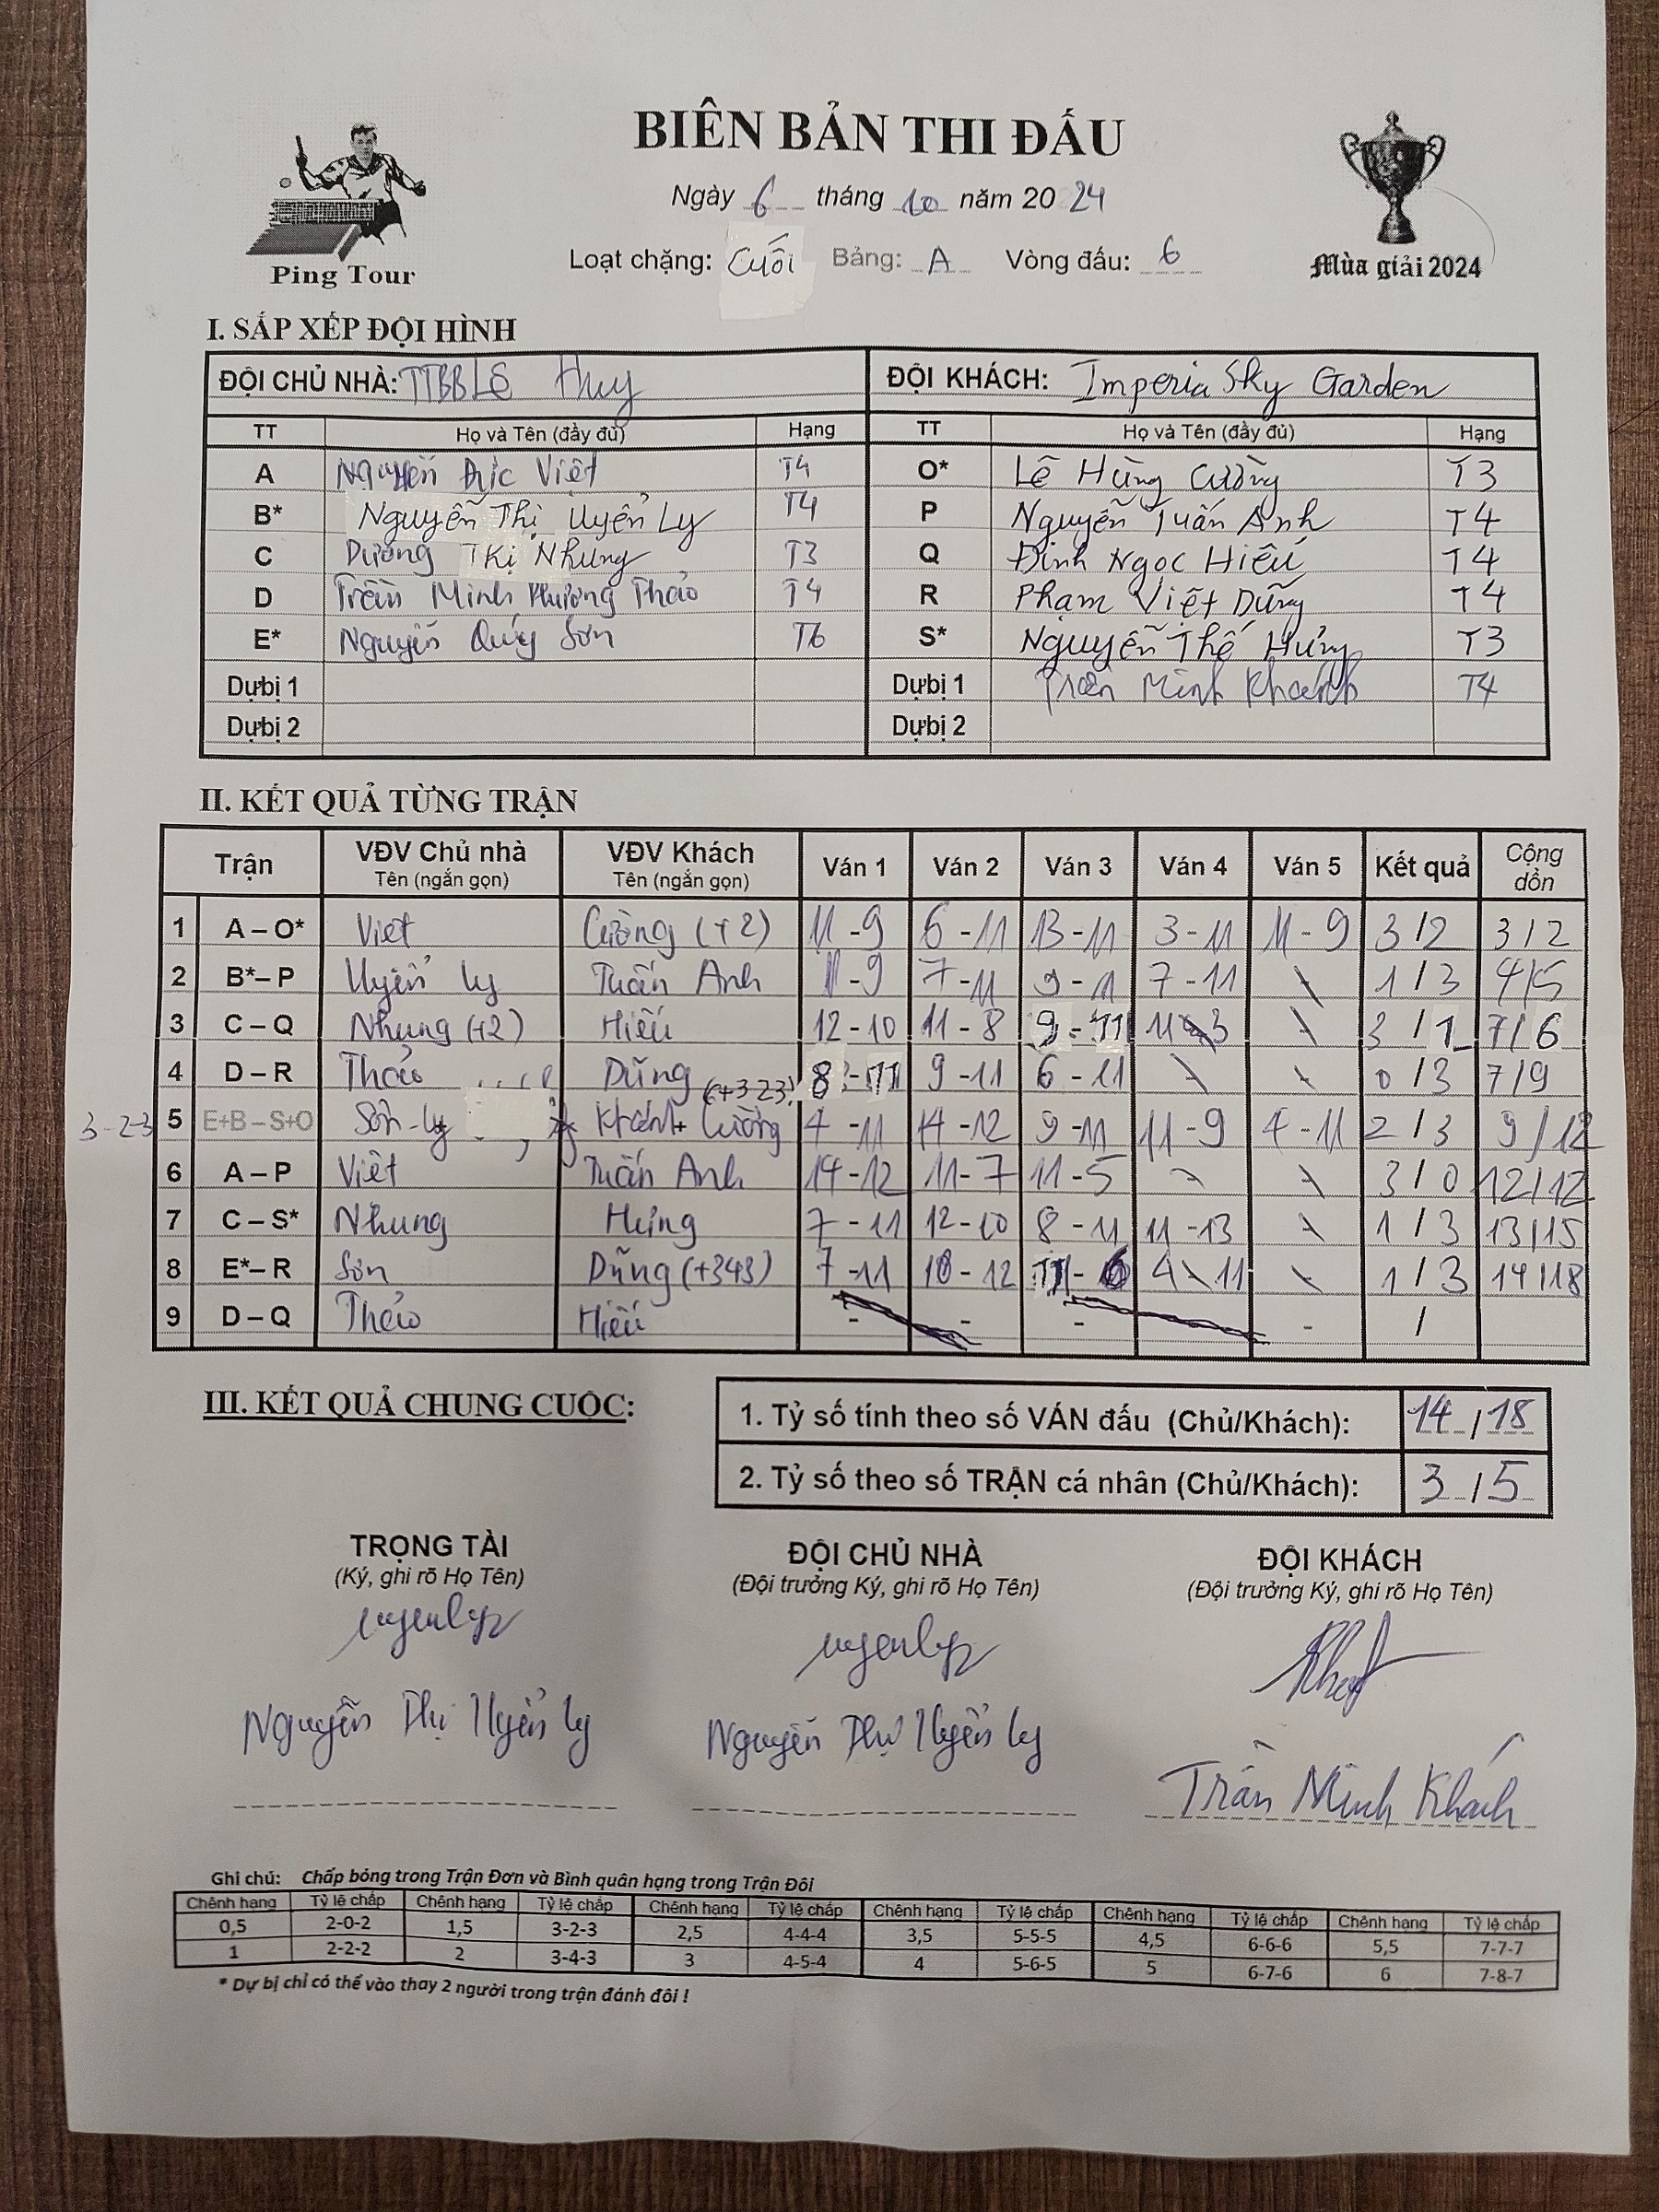 BIÊN BẢN THI ĐẤU
Ngày 6 tháng 10 năm 2024
Loạt chặng: Cuối Bảng: A Vòng đấu: 6
Ping Tour
Mùa giải 2024
I. SẮP XẾP ĐỘI HÌNH
ĐỘI CHỦ NHÀ: TTBB Lê Huy ĐỘI KHÁCH: Imperia Sky Garden
TT Họ và Tên (đầy đủ) Hạng TT Họ và Tên (đầy đủ) Hạng
A Nguyễn Đức Việt T4 O* Lê Hùng Cường T3
B* Nguyễn Thị Uyển Ly T4 P Nguyễn Tuấn Anh T4
C Dương Thị Nhung T3 Q Đinh Ngọc Hiếu T4
D Trần Minh Phương Thảo T4 R Phạm Việt Dũng T4
E* Nguyễn Quý Sơn T6 S* Nguyễn Thế Hưng T3
Dự bị 1 Dự bị 1 Trần Minh Khánh T4
Dự bị 2 Dự bị 2
II. KẾT QUẢ TỪNG TRẬN
Trận VĐV Chủ nhà Tên (ngắn gọn) VĐV Khách Tên (ngắn gọn) Ván 1 Ván 2 Ván 3 Ván 4 Ván 5 Kết quả Cộng dồn
1 A – O* Việt Cường (+2) 11-9 6-11 13-11 3-11 11-9 3/2 3/2
2 B*– P Uyển Ly Tuấn Anh 11-9 7-11 9-11 7-11 \ 1/3 4/5
3 C – Q Nhung (+2) Hiếu 12-10 11-8 9-11 11-3 \ 3/1 7/6
4 D – R Thảo Dũng 8-11 9-11 6-11 \ \ 0/3 7/9
3-23 5 E+B – S+O Sơn-Ly Khánh+Cường (+323) 4-11 14-12 9-11 11-9 4-11 2/3 9/12
6 A – P Việt Tuấn Anh 14-12 11-7 11-5 \ \ 3/0 12/12
7 C – S* Nhung Hưng 7-11 12-10 8-11 11-13 \ 1/3 13/15
8 E*– R Sơn Dũng (+343) 7-11 10-12 11-6 4-11 \ 1/3 14/18
9 D – Q Thảo Hiếu - - - - /
III. KẾT QUẢ CHUNG CUỘC:
1. Tỷ số tính theo số VÁN đấu (Chủ/Khách): 14/18
2. Tỷ số theo số TRẬN cá nhân (Chủ/Khách): 3/5
TRỌNG TÀI ĐỘI CHỦ NHÀ ĐỘI KHÁCH
(Ký, ghi rõ Họ Tên) (Đội trưởng Ký, ghi rõ Họ Tên) (Đội trưởng Ký, ghi rõ Họ Tên)
Nguyễn Thị Uyển Ly Nguyễn Thị Uyển Ly Trần Minh Khánh
Ghi chú: Chấp bóng trong Trận Đơn và Bình quân hạng trong Trận Đôi
Chênh hạng Tỷ lệ chấp Chênh hạng Tỷ lệ chấp Chênh hạng Tỷ lệ chấp Chênh hạng Tỷ lệ chấp Chênh hạng Tỷ lệ chấp Chênh hạng Tỷ lệ chấp
0,5 2-0-2 1,5 3-2-3 2,5 4-4-4 3,5 5-5-5 4,5 6-6-6 5,5 7-7-7
1 2-2-2 2 3-4-3 3 4-5-4 4 5-6-5 5 6-7-6 6 7-8-7
* Dự bị chỉ có thể vào thay 2 người trong trận đánh đôi !